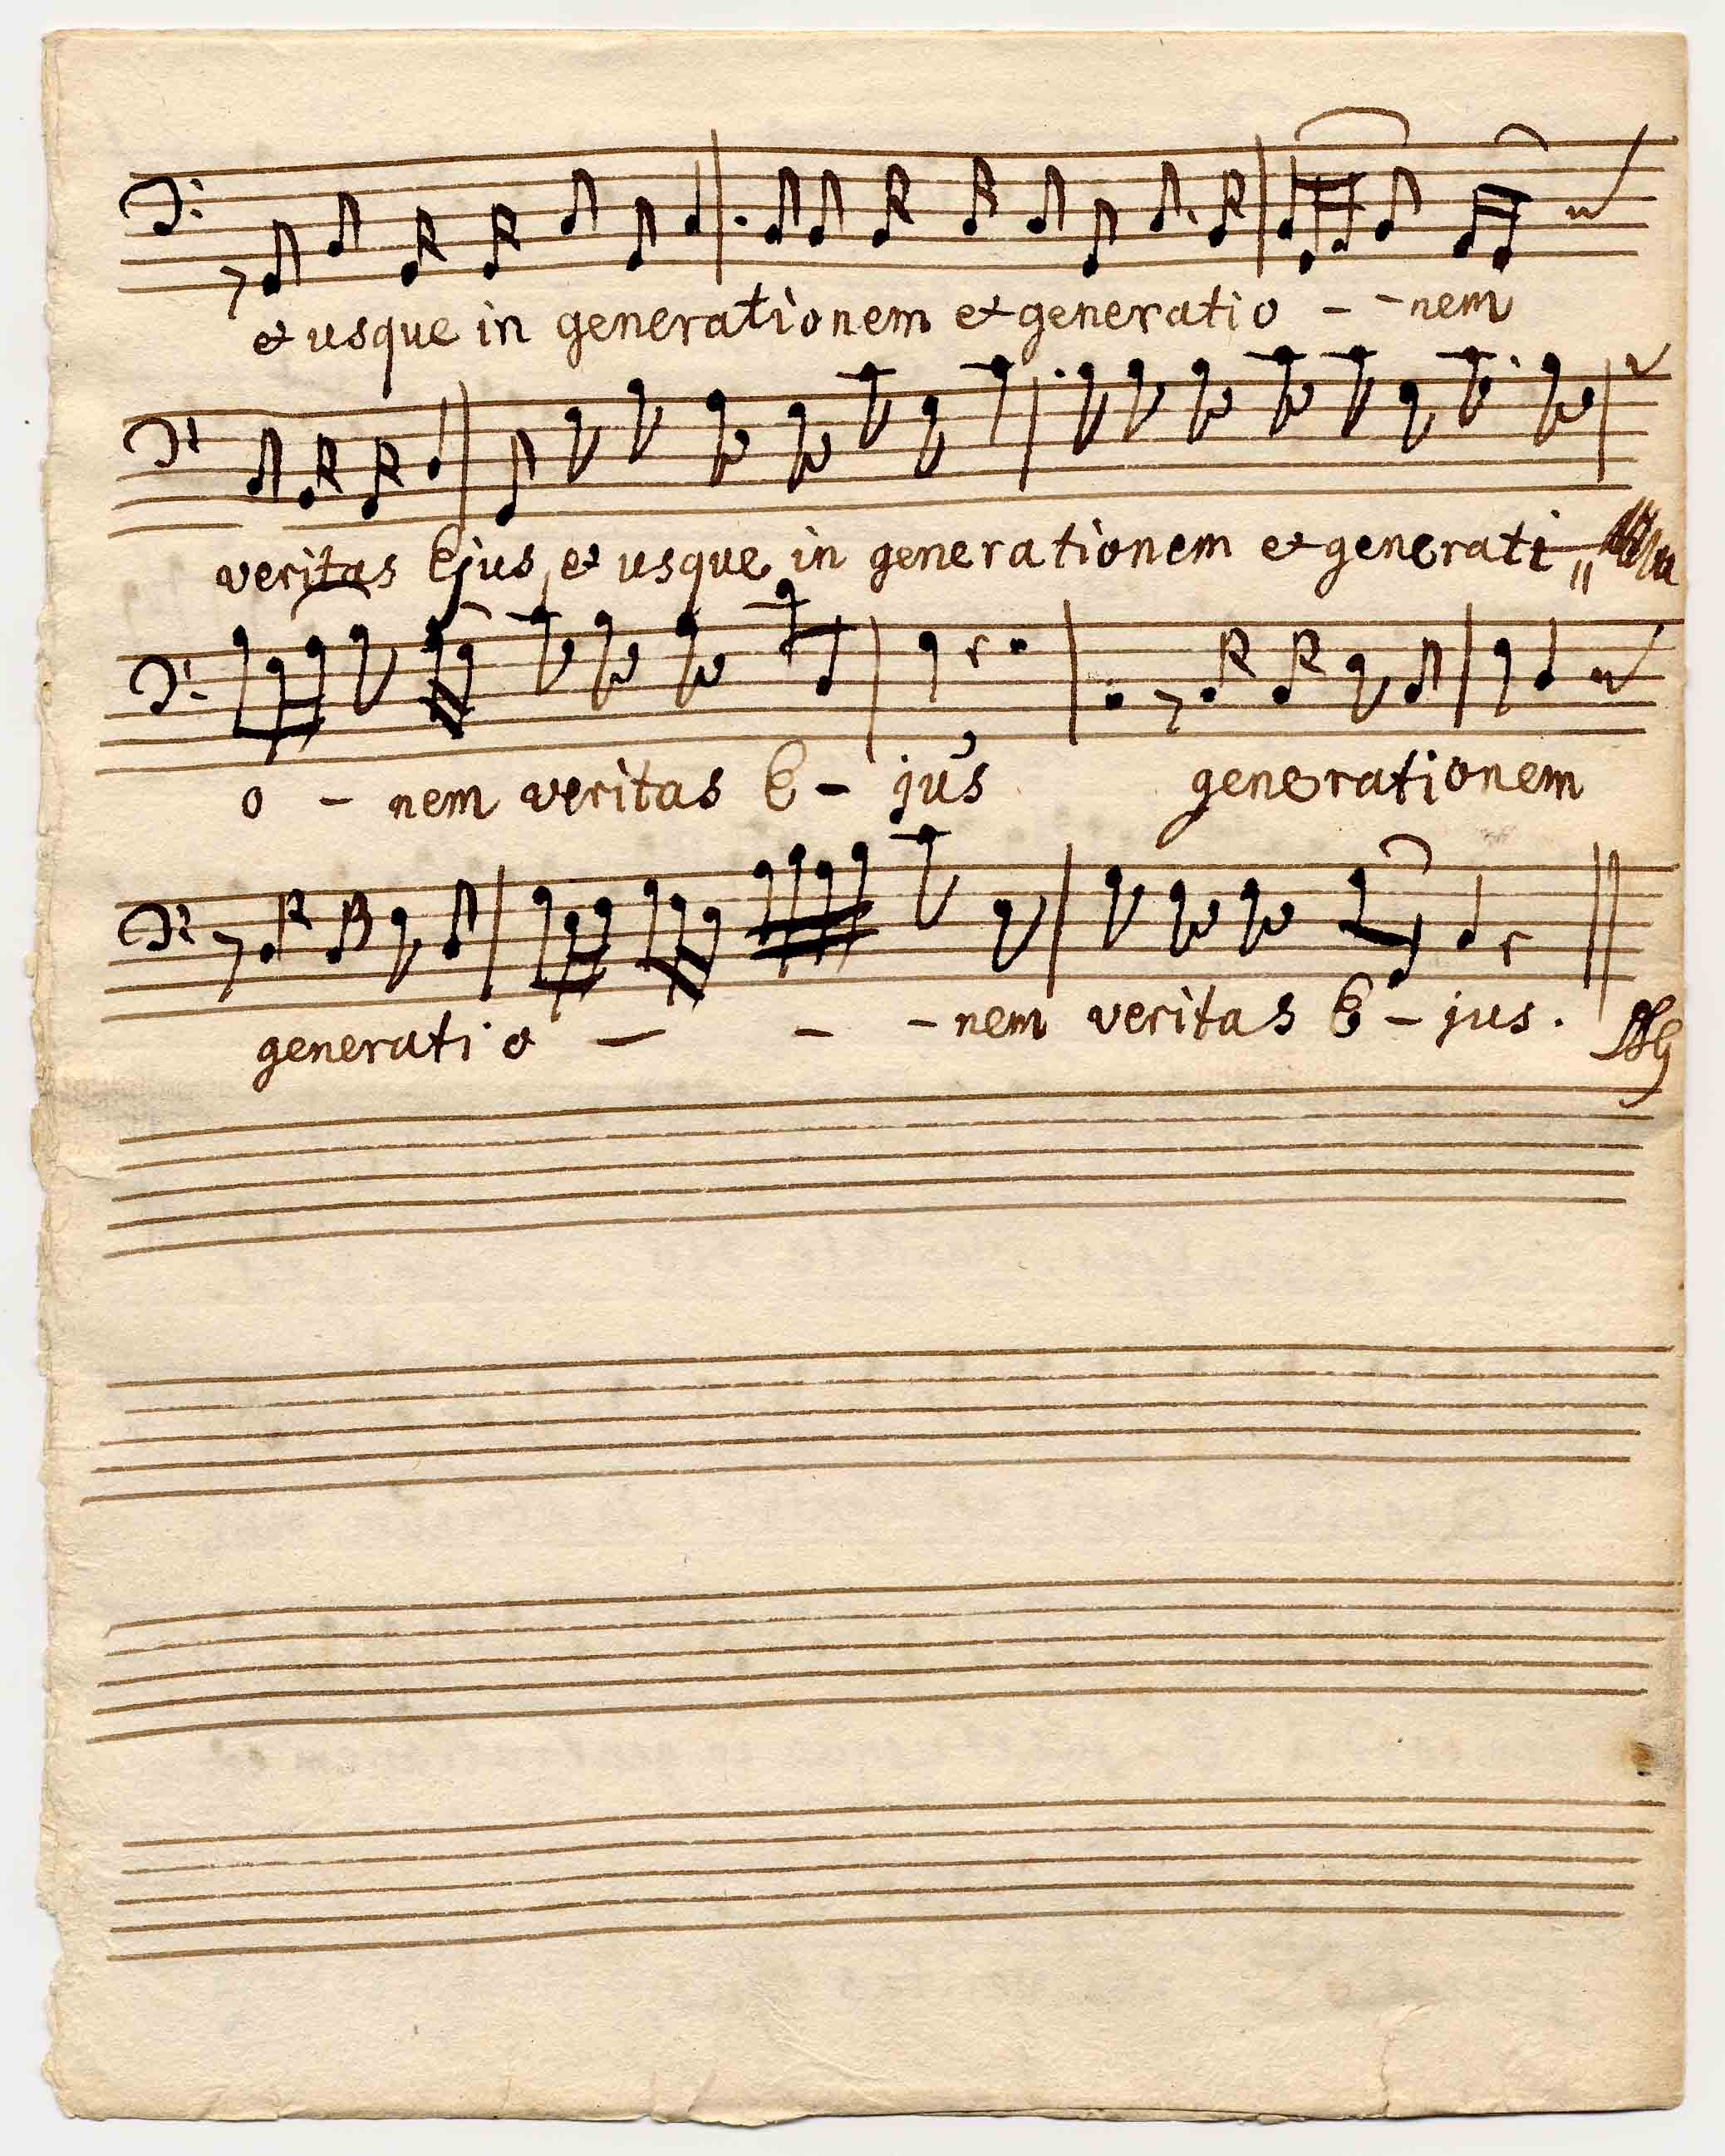 & usque in generationem & generatio - - nem
veritas Ejus & usque in generationem & generati
o - nem veritas E - jus generationem
generatio - - - nem veritas E - jus.